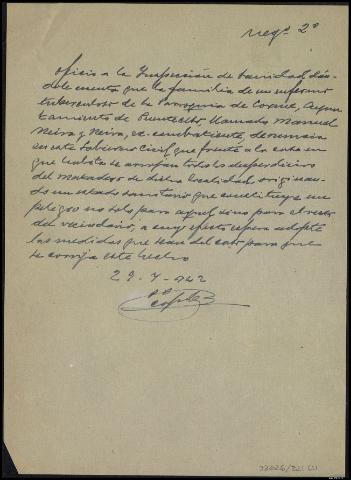 Negº 2º
Oficio a la Inspección de Sanidad dán-
dole cuenta que la familia de un enfermo
tuberculoso de la Parroquia de Ayun-
tamiento de llamado Manuel
Neira y Neira, ex-combatiente, denuncia
en este Gobierno Civil, que frente a la casa en
que habita se arrojan todos los desperdicios
del Matadero de dicha localidad originan-
do un estado sanitario que constituye un
peligro no solo para aquel sino para el resto
del vecindario, a cuyo efecto espera adopte
las medidas que sean del caso para que
se corrija este hecho
29-7-942